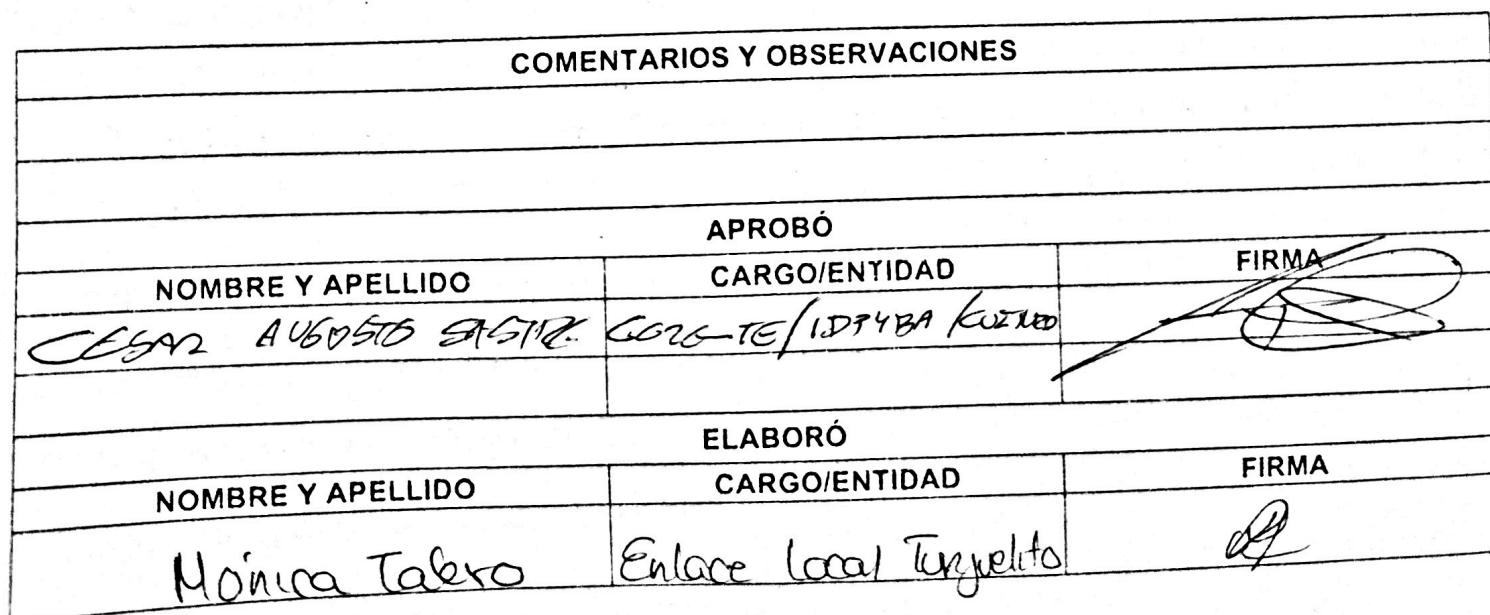 COMENTARIOS Y OBSERVACIONES
APROBÓ
NOMBRE Y APELLIDO CARGO/ENTIDAD FIRMA
CESAR AUGOSTO IDPYBA
ELABORÓ
NOMBRE Y APELLIDO CARGO/ENTIDAD FIRMA
Mónica Talero Enlace Local Tunjuelito